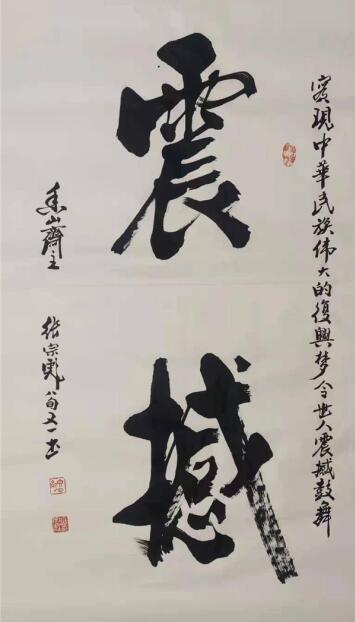 實現中華民族伟大的復興梦令世人震撼鼓舞
震撼
香山齋主
張宗彪八旬又一书